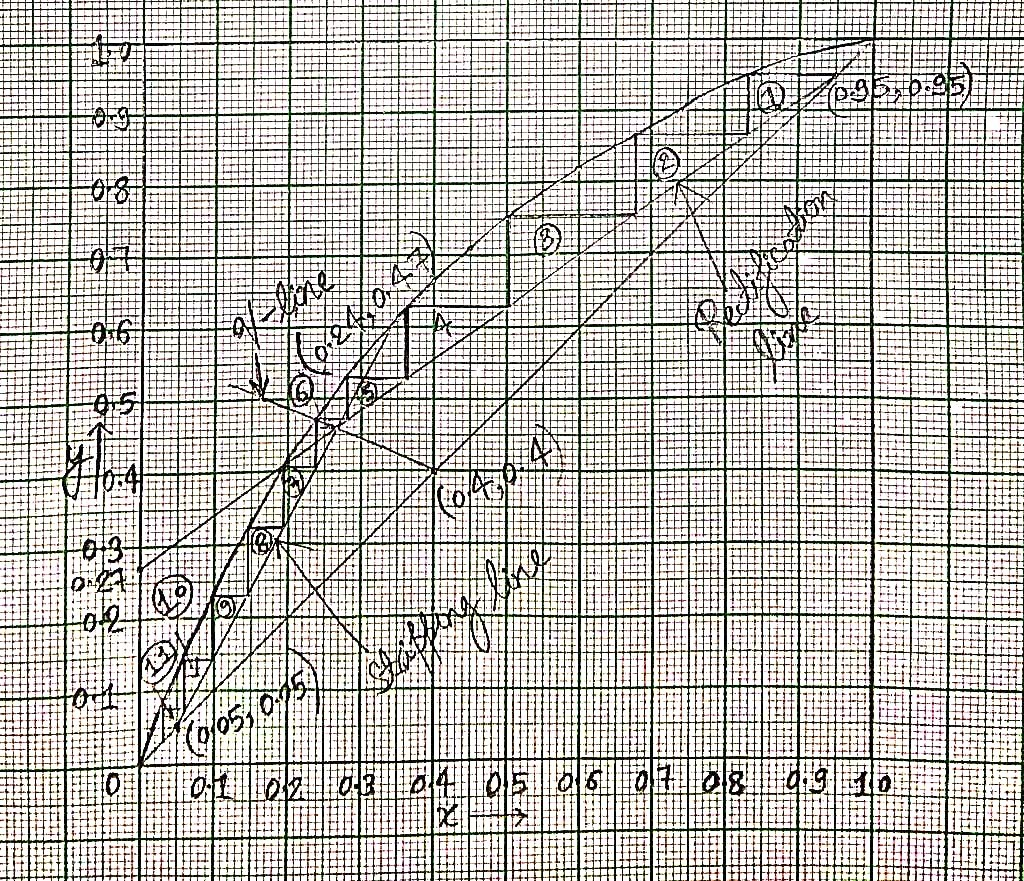 1.0
(0.95, 0.95)
①
0.9
②
0.8
Rectification
line
③
0.7
q-line
(0.24, 0.47)
0.6
4
⑥
⑤
0.5
y
0.4
(0.4, 0.4)
⑦
⑧
0.3
0.27
10
⑨
0.2
Stripping line
11
0.1
(0.05, 0.05)
0 0.1 0.2 0.3 0.4 0.5 0.6 0.7 0.8 0.9 1.0
x